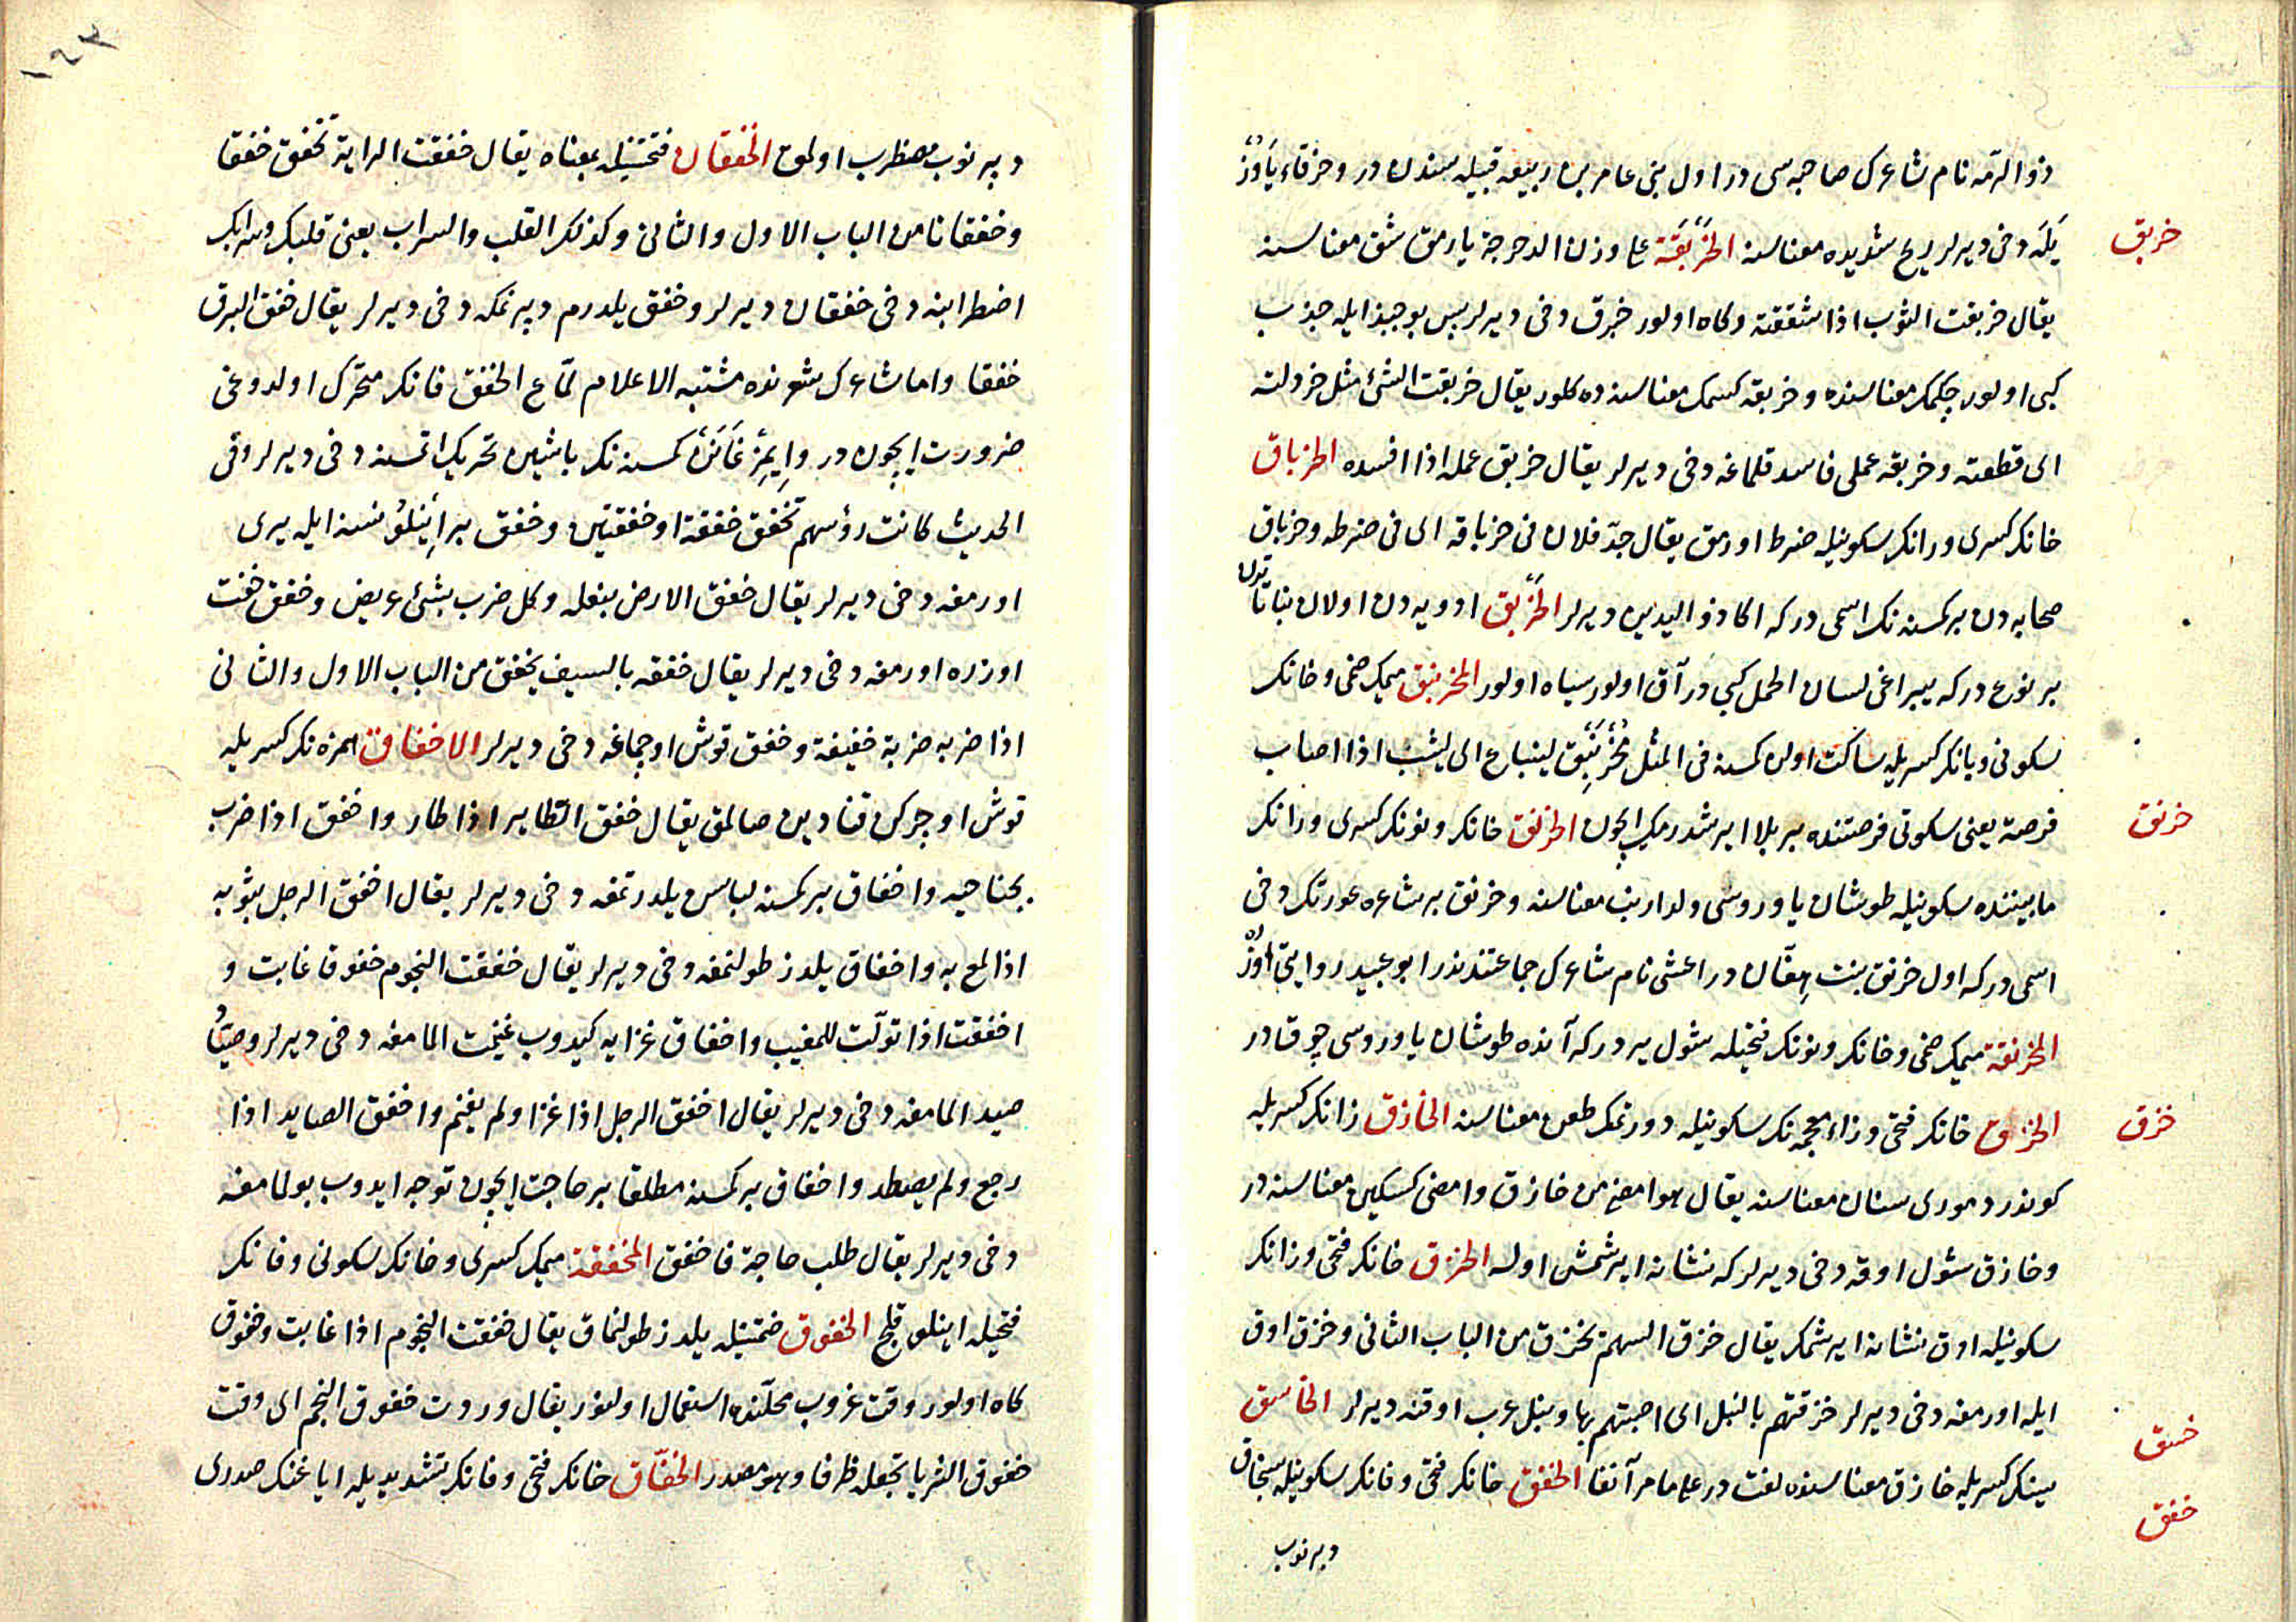 ذو الرمه نام شاعرك صاحبه سى در اول بنى عامر بن ربيعه قبيله سندن در و خرقاء ياوز
خربق
يله دخى ديرلر ريح شديده معناسنه الخَرْبَقَة على وزن الدحرجة يارمق شق معناسنه
يقال خربقت الثوب اذا شققته و كاه اولور خبرق دخى ديرلر پس بو جبذ ايله جذب
كبى اولور چكمك معناسنده و خربقه كسمك معناسنه ده كلور يقال خربقت الشئ مثل خردلته
اى قطعته و خربقه عملى فاسد قلماغه دخى ديرلر يقال خربق عمله اذا افسده الخرباق
خانك كسرى و رانك سكونيله ضرط اورمق يقال جدّ فلان فى خرباقه اى فى ضرطه و خرباق
صحابه دن بر كمسنه نك اسمى در كه اكا ذو اليدين ديرلر الخَرْبق ادويه دن اولان نباتاتدن
بر نوع در كه يپراغى لسان الحمل كبى در آق اولور سياه اولور المخرنبق ميمك ضمى و خانك
سكونى و بانك كسريله ساكت اولن كمسنه فى المثل مُخْرَنْبِق لينباع اى ليثب اذا اصاب
خرنق
فرصة يعنى سكوتى فرصتنده بر بلا ايرشدرمك ايچون الخرنق خانك و نونك كسرى و رانك
مابيننده سكونيله طوشان ياوروسى ولد ارنب معناسنه و خرنق بر شاعره عورتك دخى
اسمى در كه اول خرنق بنت هفّان در اعشى نام شاعرك جماعتندندر ابو عبيد روايتى اوزره
المخرنقة ميمك ضمى و خانك و نونك فتحيله شول ير در كه آنده طوشان ياوروسى چوقادر
خزق
الخزق خانك فتحى و زاء معجمه نك سكونيله دورتمك طعن معناسنه الخازق زانك كسريله
كوندر دمورى سنان معناسنه يقال هو امضى من خازق و امضى كسكين معناسنه در
و خازق شول اوقه دخى ديرلر كه نشانه ايرشمش اوله الخزق خانك فتحى و زانك
سكونيله اوق نشانه ايرشمك يقال خزق السهم يخزق من الباب الثانى و خزق اوق
ايله اورمغه دخى ديرلر خزقتهم بالنبل اى اصبتهم بها و نبل عرب اوقنه ديرلر الخاسق
خسق
سينك كسريله خازق معناسنده لغت در على ما مر آنفا الخفق خانك فتحى و فانك سكونيله سنجاق
خفق
دپرنوب
١٤٣
دپرنوب مضطرب اولمق الخفقان فتحتينله بمعناه يقال خفقت الراية تخفق خفقا
و خفقانا من الباب الاول و الثانى و كذلك القلب و السراب يعنى قلبك و سرابك
اضطرابنه دخى خفقان ديرلر و خفق يلدرم دپرنمكه دخى ديرلر يقال خفق البرق
خفقا و اما شاعرك شعرنده مشتبه الاعلام لمّاع الخفق فانك متحرك اولدوغى
ضرورت ايچون در و ايمزغانن كمسنه نك باشين تحريك اتمسنه دخى ديرلر و فى
الحديث كانت رؤسهم تخفق خفقة او خفقتين و خفق بر اينلو نسنه ايله يرى
اورمغه دخى ديرلر يقال خفق الارض بنعله و كل ضرب بشئ عريض و خفق خفت
اوزره اورمغه دخى ديرلر يقال خفقه بالسيف يخفق من الباب الاول و الثانى
اذا ضربه ضربة خفيفة و خفق قوش اوچماغه دخى ديرلر الاخفاق همزه نك كسريله
قوش اوچركن قنادين صالمق يقال خفق الطاير اذا طار و اخفق اذا ضرب
بجناحيه و اخفاق بر كمسنه لباسن يلدرتمغه دخى ديرلر يقال اخفق الرجل بثوبه
اذا لمع به و اخفاق يلدز طولنمغه دخى ديرلر يقال خفقت النجوم خفوقا غابت و
اخفقت اذا تولّت للمغيب و اخفاق غزايه كيدوب غنيمت المامغه دخى ديرلر و صيّاد
صيد المامغه دخى ديرلر يقال اخفق الرجل اذا غزا و لم يغنم و اخفق الصايد اذا
رجع و لم يصطد و اخفاق بر كمسنه مطلقا بر حاجت ايچون توجه ايدوب بولمامغه
دخى ديرلر يقال طلب حاجة فاخفق المخفقة ميمك كسرى و خانك سكونى و فانك
فتحيله اينلو قلج الخفوق ضمتينله يلدز طولنماق يقال خفقت النجوم اذا غابت و خفوق
كاه اولور وقت غروب محلّنده استعمال اولنور يقال وردت خفوق النجم اى وقت
خفوق الثريا تجعله ظرفا و هو مصدر الخفّاق خانك فتحى و فانك تشديديله اياغنك صدرى